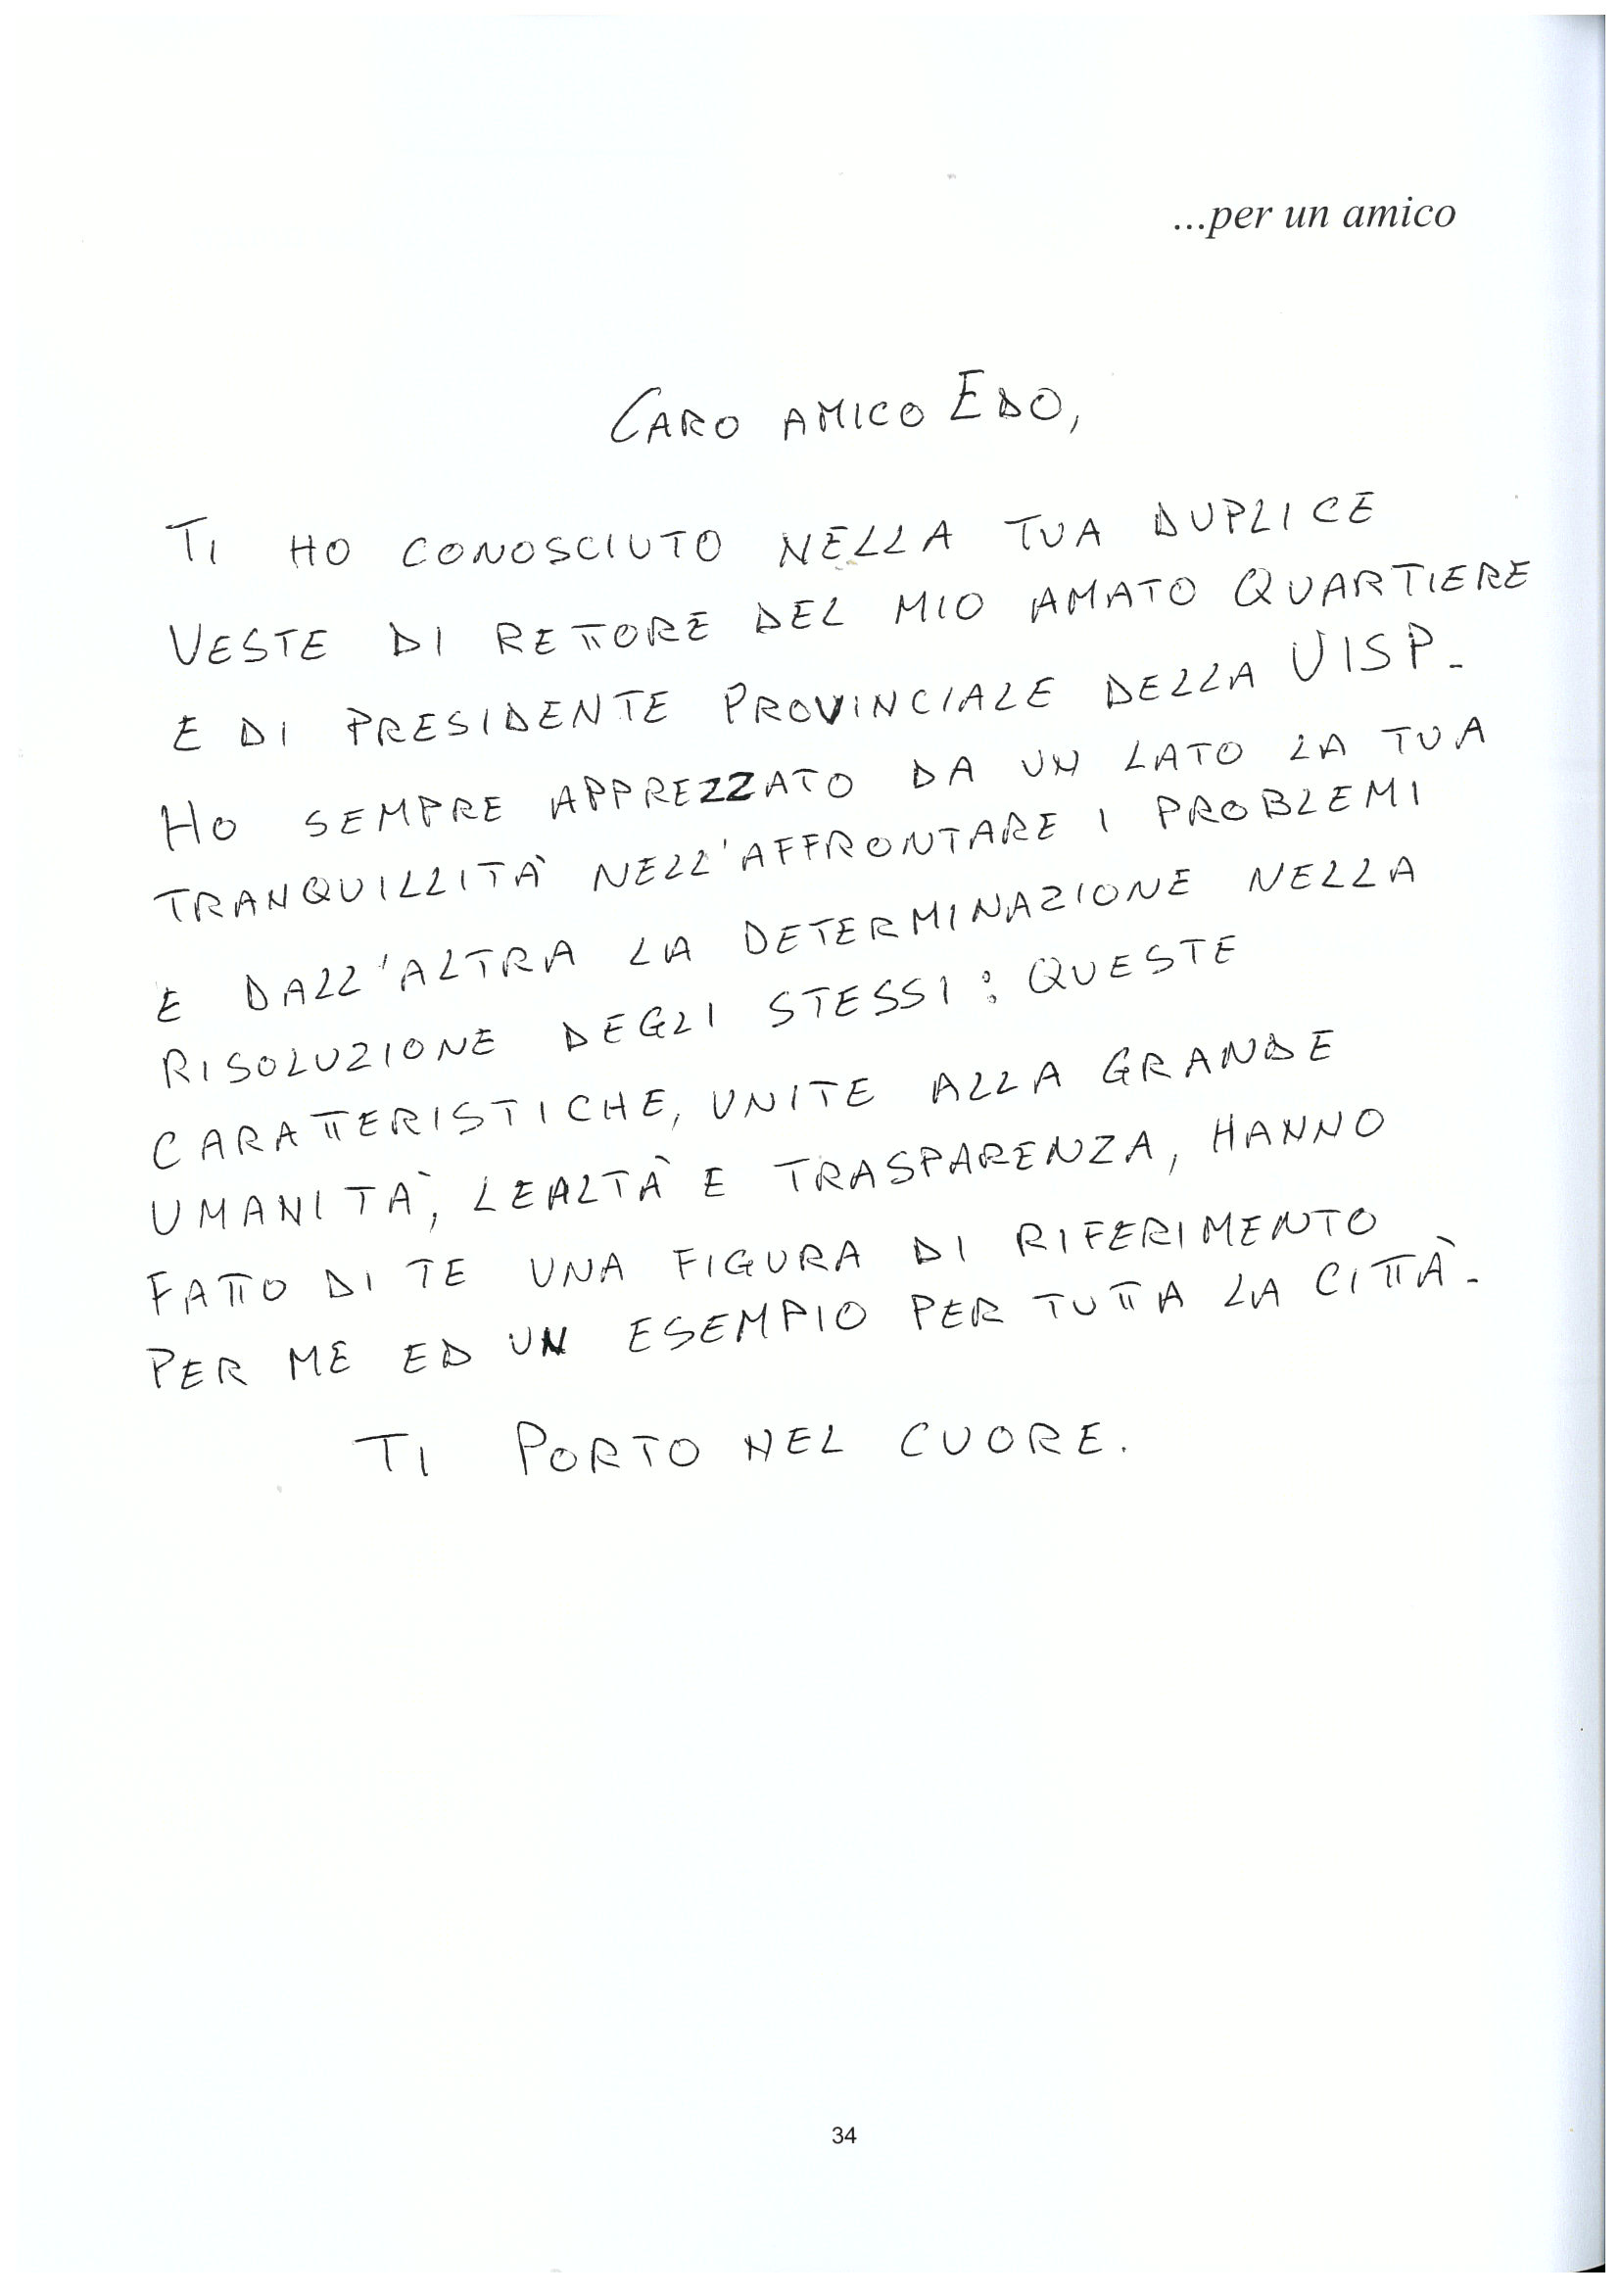 ...per un amico
CARO AMICO EDO,
TI HO CONOSCIUTO NELLA TUA DUPLICE
VESTE DI RETTORE DEL MIO AMATO QUARTIERE
E DI PRESIDENTE PROVINCIALE DELLA UISP.
HO SEMPRE APPREZZATO DA UN LATO LA TUA
TRANQUILLITÀ NELL'AFFRONTARE I PROBLEMI
E DALL'ALTRA LA DETERMINAZIONE NELLA
RISOLUZIONE DEGLI STESSI: QUESTE
CARATTERISTICHE, UNITE ALLA GRANDE
UMANITÀ, LEALTÀ E TRASPARENZA, HANNO
FATTO DI TE UNA FIGURA DI RIFERIMENTO
PER ME ED UN ESEMPIO PER TUTTA LA CITTÀ.
TI PORTO NEL CUORE.
34